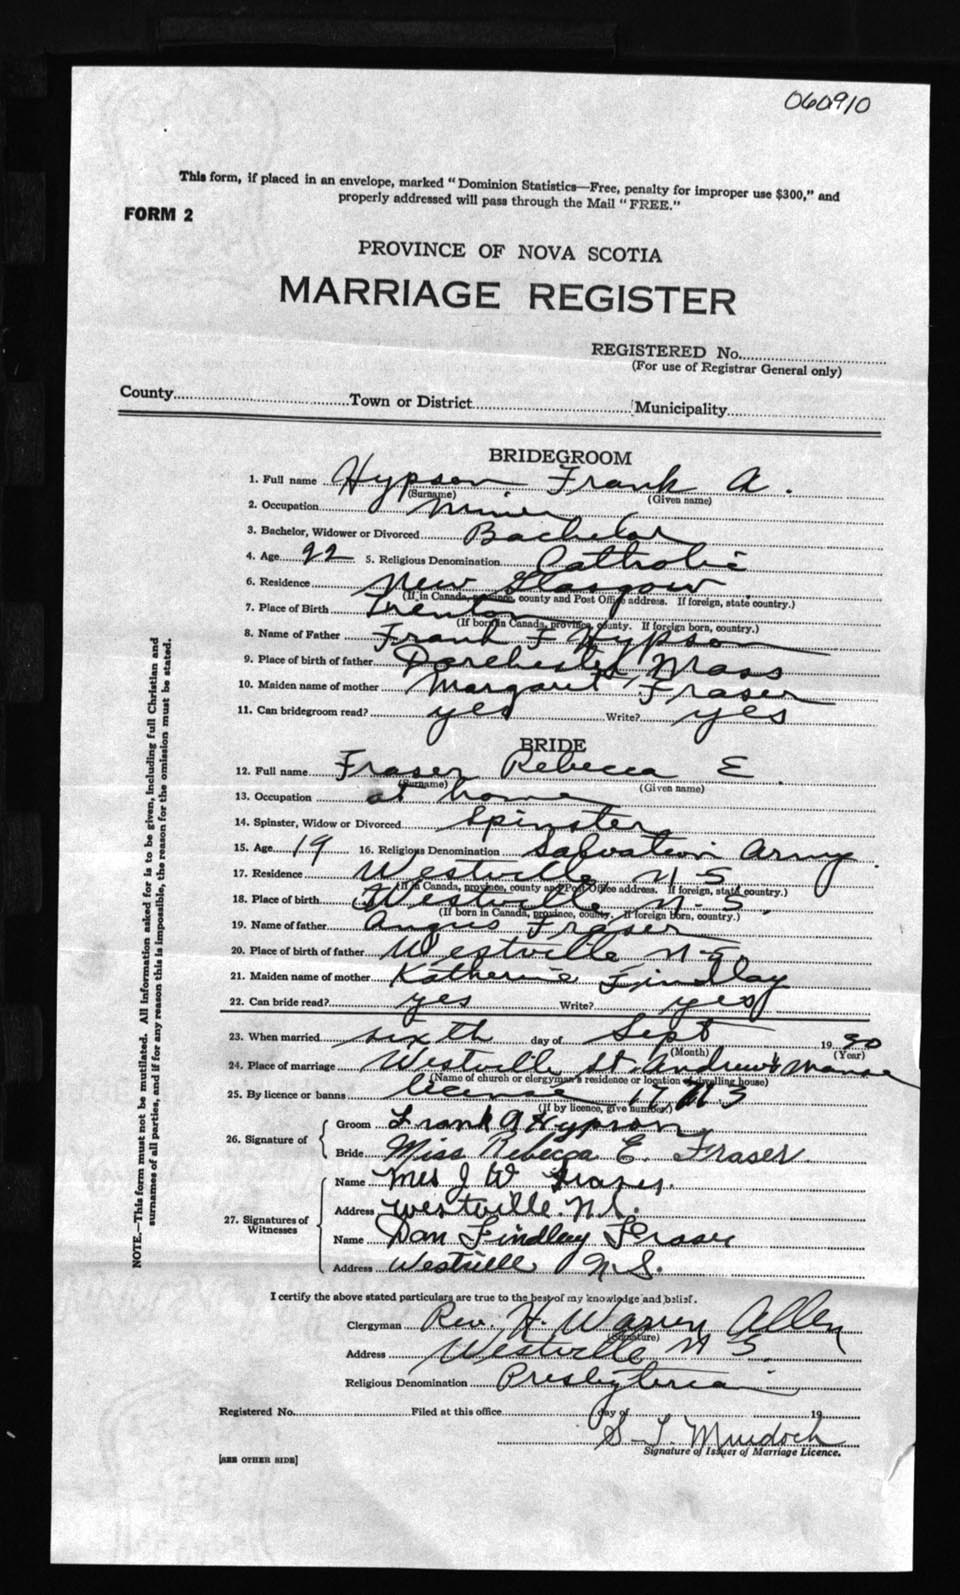 060910
This form, if placed in an envelope, marked "Dominion Statistics—Free, penalty for improper use $300," and
properly addressed will pass through the Mail "FREE."
FORM 2
PROVINCE OF NOVA SCOTIA
MARRIAGE REGISTER
REGISTERED No.
(For use of Registrar General only)
County Town or District Municipality
BRIDEGROOM
1. Full name Hypson Frank A.
(Surname) (Given name)
2. Occupation Miner
3. Bachelor, Widower or Divorced Bachelor
4. Age 22 5. Religious Denomination Catholic
6. Residence New Glasgow
(If in Canada, province, county and Post Office address. If foreign, state country.)
7. Place of Birth Trenton
(If born in Canada, province, county. If foreign born, country.)
8. Name of Father Frank F Hypson
9. Place of birth of father Dorchester, Mass
10. Maiden name of mother Margaret Fraser
11. Can bridegroom read? yes Write? yes
BRIDE
12. Full name Fraser Rebecca E
(Surname) (Given name)
13. Occupation at home
14. Spinster, Widow or Divorced Spinster
15. Age 19 16. Religious Denomination Salvation Army
17. Residence Westville N S
(If in Canada, province, county and Post Office address. If foreign, state country.)
18. Place of birth Westville N.S.
(If born in Canada, province, county. If foreign born, country.)
19. Name of father Angus Fraser
20. Place of birth of father Westville N-S
21. Maiden name of mother Katherine Findlay
22. Can bride read? yes Write? yes
23. When married sixth day of Sept 19 30
(Month) (Year)
24. Place of marriage Westville St. Andrew's Manse
(Name of church or clergyman's residence or location of dwelling house)
25. By licence or banns license
(If by licence, give number.)
26. Signature of Groom Frank A Hypson
Bride Miss Rebecca E. Fraser
27. Signatures of Witnesses
Name Mrs J W
Address Westville N.S.
Name Dan Findlay Fraser
Address Westville N.S.
I certify the above stated particulars are true to the best of my knowledge and belief.
Clergyman Rev. H. Warren Allen
(Signature)
Address Westville N S.
Religious Denomination Presbyterian
Registered No. Filed at this office day of 19
S. T. Murdoch
Signature of Issuer of Marriage Licence.
[SEE OTHER SIDE]
NOTE.—This form must not be mutilated. All information asked for is to be given, including full Christian and
surnames of all parties, and if for any reason this is impossible, the reason for the omission must be stated.